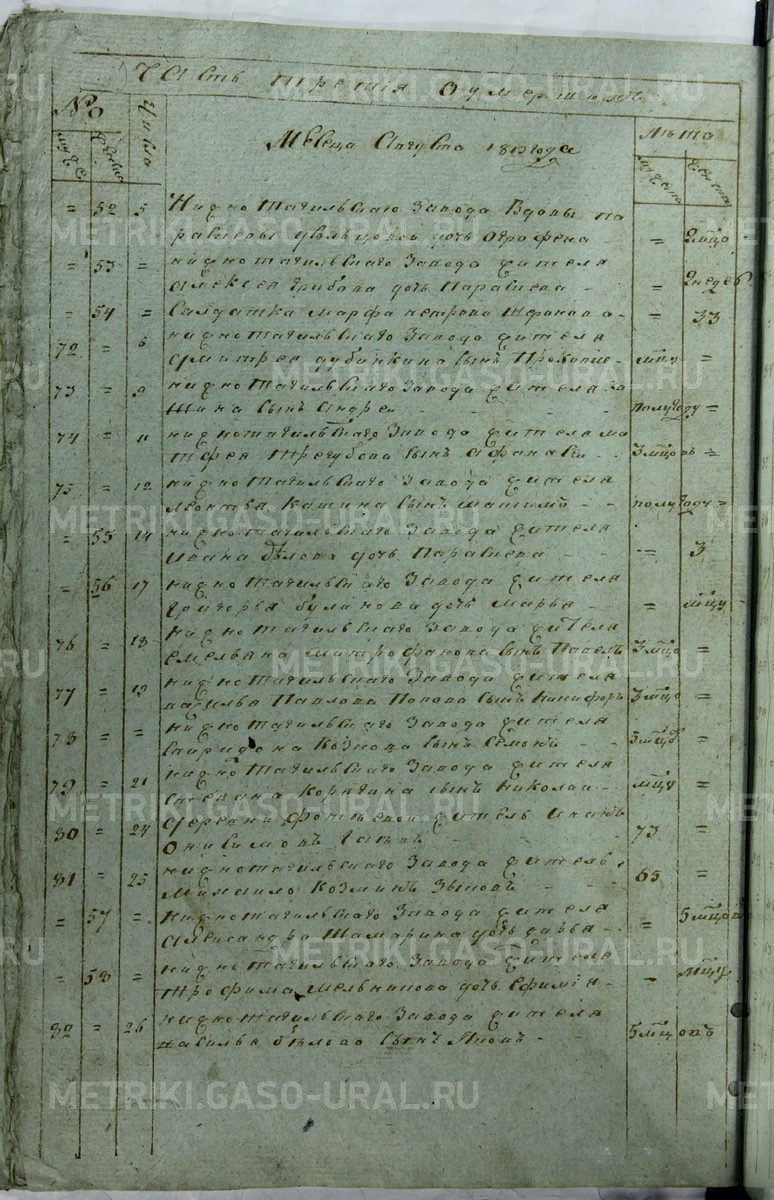 Часть третия О умершихъ
№
Числа
Мѣсеца Августа 1813 года
Лѣта
= 52 5 Нижнотагильскаго Завода Вдовы Па
расковы дочь Огрофена = 2 мцо
= 53 = нижнотагильскаго Завода жителя
Алексея Грибова дочь Парасковья = 2 недел
= 54 = Салдатка марфа петрова = 33
72 = 6 нижнотагильскаго Завода жителя
Дмитрея дубинкина сынъ Прокопие мцу =
73 = 9 нижнотагильскаго Завода жителя
сынъ Андре полугоду =
74 = 11 нижнотагильскаго Завода жителя ма
тфея Трегубова сынъ Афанаси 3 мцовъ =
75 = 12 нижнотагильскаго Завода жителя
леонтья Кашина сынъ полугоду =
= 55 14 нижнотагильскаго Завода жителя
Ивана бѣлова дочь Парасковья = 3
= 56 17 нижнотагильскаго Завода жителя
Григорья буланова дочь Марья = мцу
76 = 18 нижнотагильскаго Завода жителя
Емельяна митрофанова сынъ Павелъ 3 мцо =
77 = 19 нижнотагильскаго Завода жителя
василья Павлова Попова сынъ Никифоръ 3 мцо =
78 = = нижнотагильскаго Завода жителя
Спиридона Козкова сынъ Семонъ 3 мцо =
79 = 21 нижнотагильскаго Завода жителя
степана Корягина сынъ Николаи мцу =
80 = 24 деревни житель Иванъ
Онисимовъ 73 =
81 = 25 нижнотагильскаго Завода житель
Михаило Козминъ Зыковъ 65 =
= 57 = Нижнотагильскаго Завода жителя
Александра Шамарина дочь дарья = 5 мцовъ
= 58 = нижнотагильскаго Завода жителя
Трофима Мельникова дочь Ефимія = мцу
82 = 26 нижнотагильскаго Завода жителя
василья бѣлова сынъ Яковъ 5 мцовъ
METRIKI.GASO-URAL.RU